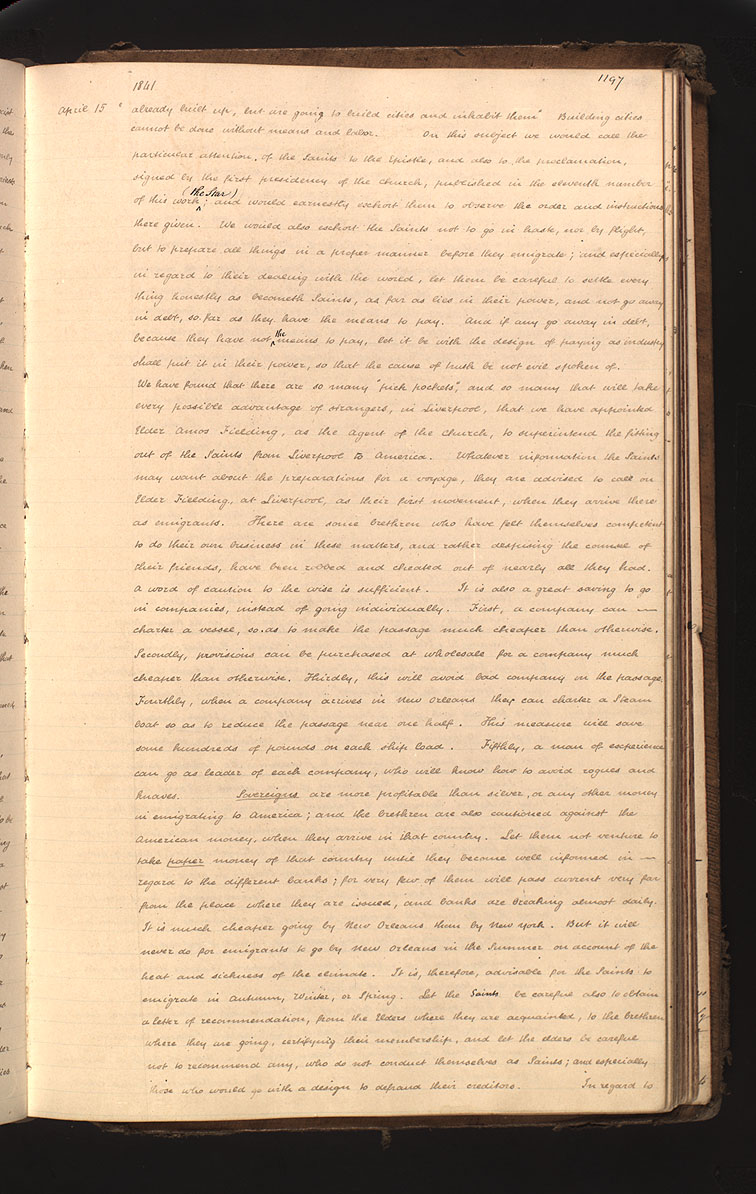 1841
1197
April 15 " already built up, but are going to build cities and inhabit them" Building cities
cannot be done without means and labor. On this subject we would call the
particular attention, of the Saints to the Epistle, and also to the proclamation,
signed by the first presidency of the church, published in the eleventh number
(the Star)
of this work; and would earnestly exhort them to observe the order and instructions
there given. We would also exhort the Saints not to go in haste, nor by flight,
but to prepare all things in a proper manner before they emigrate; and especially
in regard to their dealing with the world, let them be careful to settle every
thing honestly as becometh Saints, as far as lies in their power, and not go away
in debt, so far as they have the means to pay. And if any go away in debt,
because they have not the means to pay, let it be with the design of paying as industry
shall put it in their power, so that the cause of truth be not evil spoken of.
We have found that there are so many "pick pockets", and so many that will take
every possible advantage of strangers, in Liverpool, that we have appointed
Elder Amos Fielding, as the agent of the church, to superintend the fitting
out of the Saints from Liverpool to America. Whatever information the Saints
may want about the preparations for a voyage, they are advised to call on
Elder Fielding, at Liverpool, as their first movement, when they arrive there
as emigrants. There are some brethren who have felt themselves competent
to do their own business in these matters, and rather despising the counsel of
their friends, have been robbed and cheated out of nearly all they had.
A word of caution to the wise is sufficient. It is also a great saving to go
in companies, instead of going individually. First, a company can —
charter a vessel, so as to make the passage much cheaper than otherwise.
Secondly, provisions can be purchased at wholesale for a company much
cheaper than otherwise. Thirdly, this will avoid bad company on the passage.
Fourthly, when a company arrives in New Orleans they can charter a Steam
boat so as to reduce the passage near one half. This measure will save
some hundreds of pounds on each ship load. Fifthly, a man of experience
can go as leader of each company, who will know how to avoid rogues and
knaves. Sovereigns are more profitable than silver, or any other money
in emigrating to America; and the brethren are also cautioned against the
American money, when they arrive in that country. Let them not venture to
take paper money of that country until they become well informed in —
regard to the different banks; for very few of them will pass current very far
from the place where they are issued, and banks are breaking almost daily.
It is much cheaper going by New Orleans than by New York. But it will
never do for emigrants to go by New Orleans in the Summer on account of the
heat and sickness of the climate. It is, therefore, advisable for the Saints to
emigrate in Autumn, Winter, or Spring. Let the Saints be careful also to obtain
a letter of recommendation, from the Elders where they are acquainted, to the brethren
where they are going, certifying their membership, and let the elders be careful
not to recommend any, who do not conduct themselves as Saints; and especially
those who would go with a design to defraud their creditors. In regard to